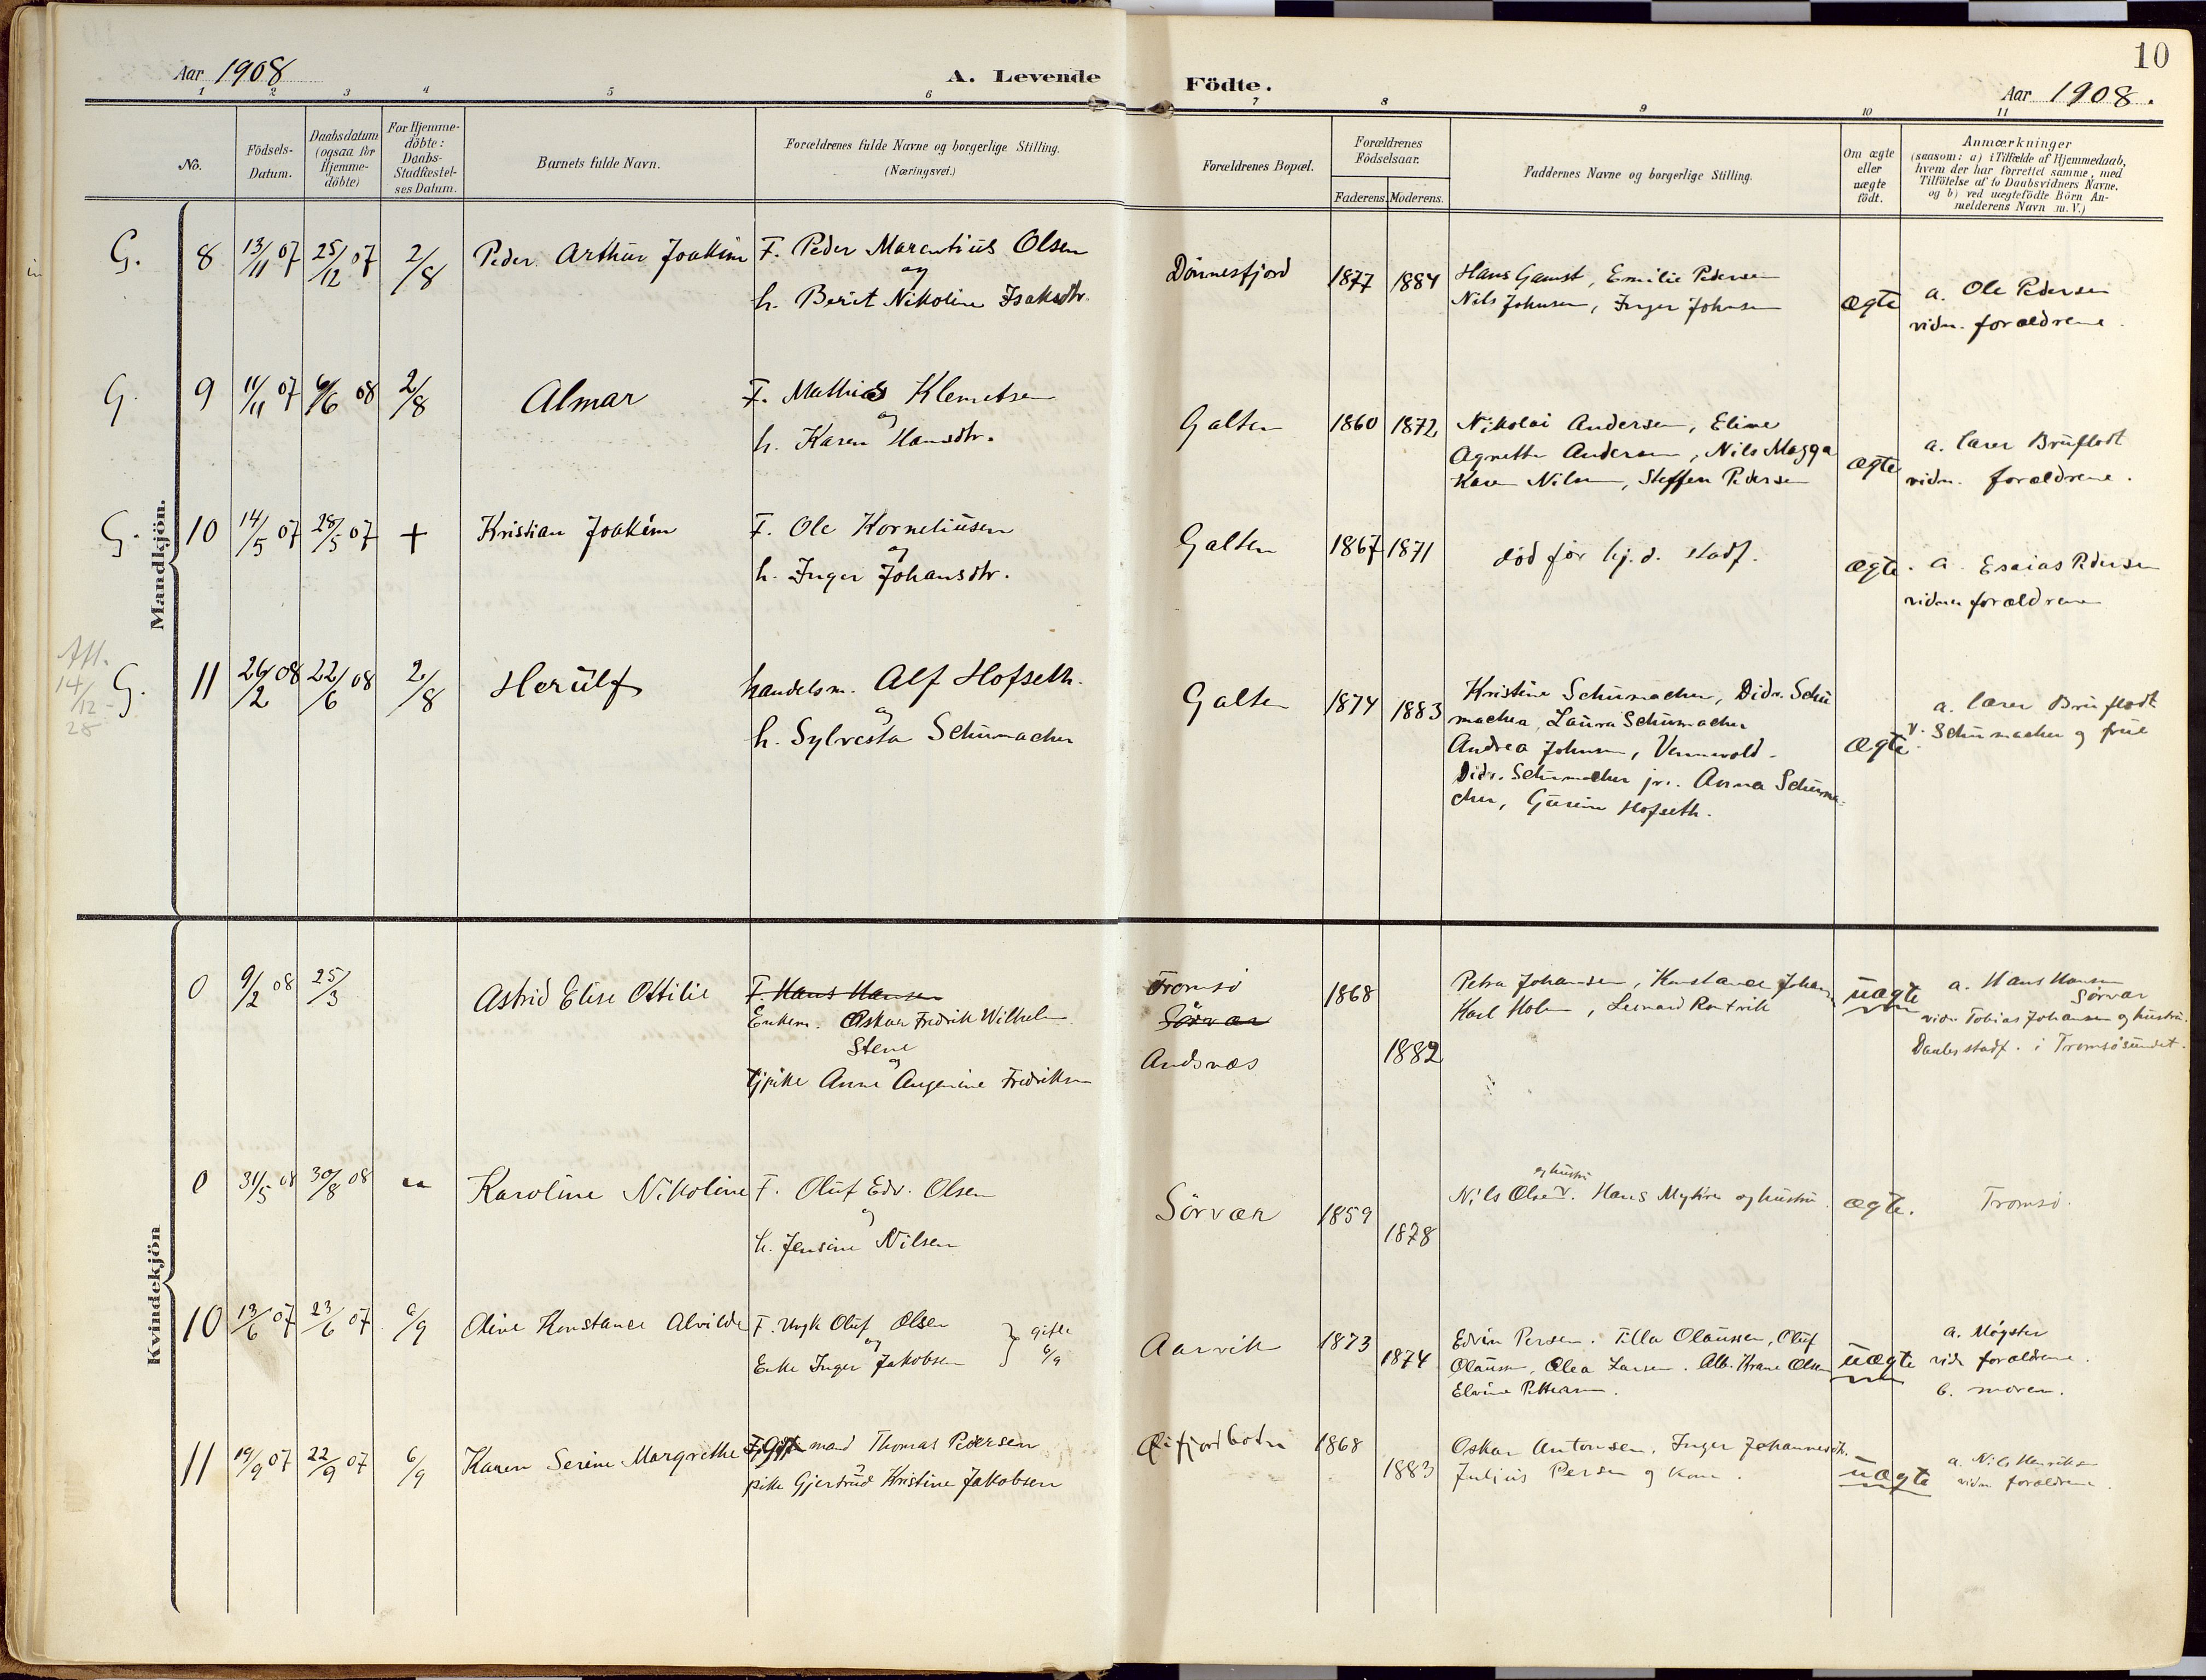 Aar 1908
A. Levende Födte.
10
Aar 1908.
1 2 3 4 5 6 7 8 9 10 11
No.
Födsels-
Datum.
Daabsdatum
(ogsaa for
Hjemme-
döbte)
For Hjemme-
döbte:
Daabs-
Stadfæstel-
ses Datum.
Barnets fulde Navn.
Forældrenes fulde Navne og borgerlige Stilling.
(Næringsvei.)
Forældrenes Bopæl.
Forældrenes
Födselsaar.
Faderens. Moderens.
Faddernes Navne og borgerlige Stilling.
Om ægte
eller
uægte
födt.
Anmærkninger
(saasom: a) i Tilfælde af Hjemmedaab,
hvem der har forrettet samme, med
Tilföielse af to Daabsvidners Navne.
og b) ved uægtefödte Börn An-
melderens Navn m. V.)
Mandkjön.
G. 8 13/11 07 25/12 07 2/8 Peder Arthur Joakim F. Peder Marentius Olsen
og
h. Berit Nikoline Isaksdtr.
Dönnesfjord 1877 1884 Hans Gamst, Emilie Pedersen
Nils Johnsen, Inger Johnsen
ægte a. Ole Pedersen
vidn. forældrene.
G. 9 11/11 07 6/6 08 2/8 Almar F. Mathias Klemetsen
og
h. Karen Hansdtr.
Galten 1860 1872 Nikolai Andersen, Eline
Agnethe Andersen, Nils Magga
Karen Nilsen, Steffen Pedersen
ægte a. lærer Bruflodt
vidn. forældrene.
G. 10 14/5 07 28/5 07 + Kristian Joakim F. Ole Korneliusen
og
h. Inger Johansdtr.
Galten 1867 1871 död för hj. d. stadf.
ægte. a. Esaias Pedersen
vidner forældrene
Afl.
14/12
28
G. 11 26/2 08 22/6 08 2/8 Herulf handelsm. Alf Hofseth.
og
h. Sylvesta Schumacher
Galten 1874 1883 Kristine Schumacher, Didr. Schu
macher, Laura Schumacher
Andrea Johnsen, Vennevold.
Didr. Schumacher jr.. Anna Schuma-
cher, Hofseth.
ægte. a. lærer Bruflodt
v. Schumacher og frue
Kvindekjön
0 9/2 08 25/3 Astrid Elise Ottilie F. Hans Hansen
Enkem. Oskar Fredrik Wilhelm
Stene
og
Pike Anne Angenine Fredriksen
Tromsö
Sörvær
Andsnæs
1868 1882
Petra Johansen, Konstance Johans
Karl Holm, Leonard
uægte a. Hans Hansen
Sörvær
vidn. Tobias Johansen og hustru.
Daabs stadf. i Tromsösundet.
0 31/5 08 30/8 08 Karoline Nikoline F. Oluf Edv. Olsen
og
h. Jensine Nilsen
Sörvær 1859 1878
og hustru
Nils Olsen. Hans og hustru
ægte. Tromsö.
10 13/6 07 23/6 07 6/9 Oline Konstance Alvilde F. Ungk Oluf Olsen
og
Enke Inger Jakobsen } gifte
6/9
Aarvik 1873 1874 Edvin Persen. Tilla Olaussen, Oluf
Olaussen, Olea Larsen. Alb. Hrane Olsen
Elvine Pettersen.
uægte a. Mögster
vidn forældrene.
b. moren.
11 19/9 07 22/9 07 6/9 Karen Serine Margrethe F. Gift mand Thomas Pedersen
pike Gjertrud Kristine Jakobsen
Öxfjordbotn 1868 1883 Oskar Antonsen, Inger Johannesdtr.
Julius Persen og kone.
uægte a. Nils Henriksen
vidn. forældrene.